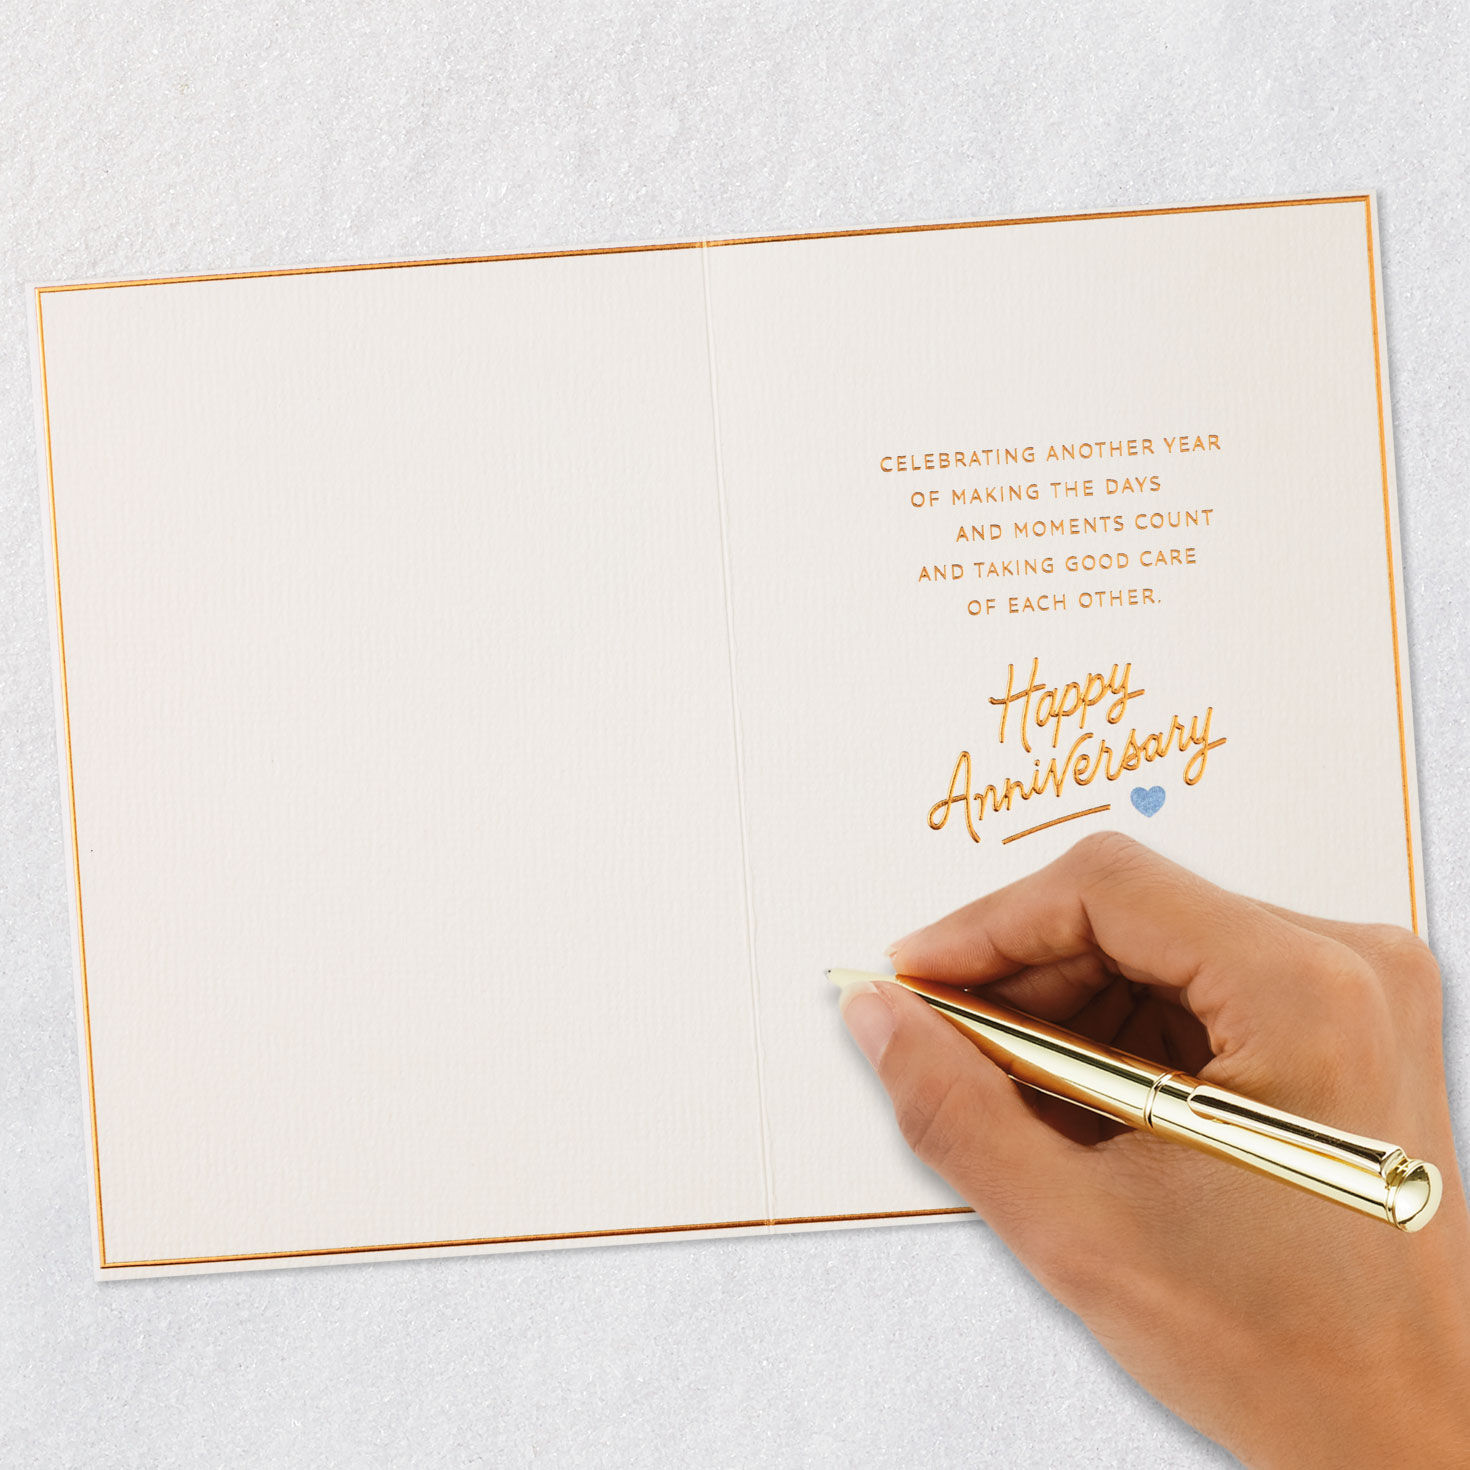 CELEBRATING ANOTHER YEAR
OF MAKING THE DAYS
AND MOMENTS COUNT
AND TAKING GOOD CARE
OF EACH OTHER.
Happy
Anniversary